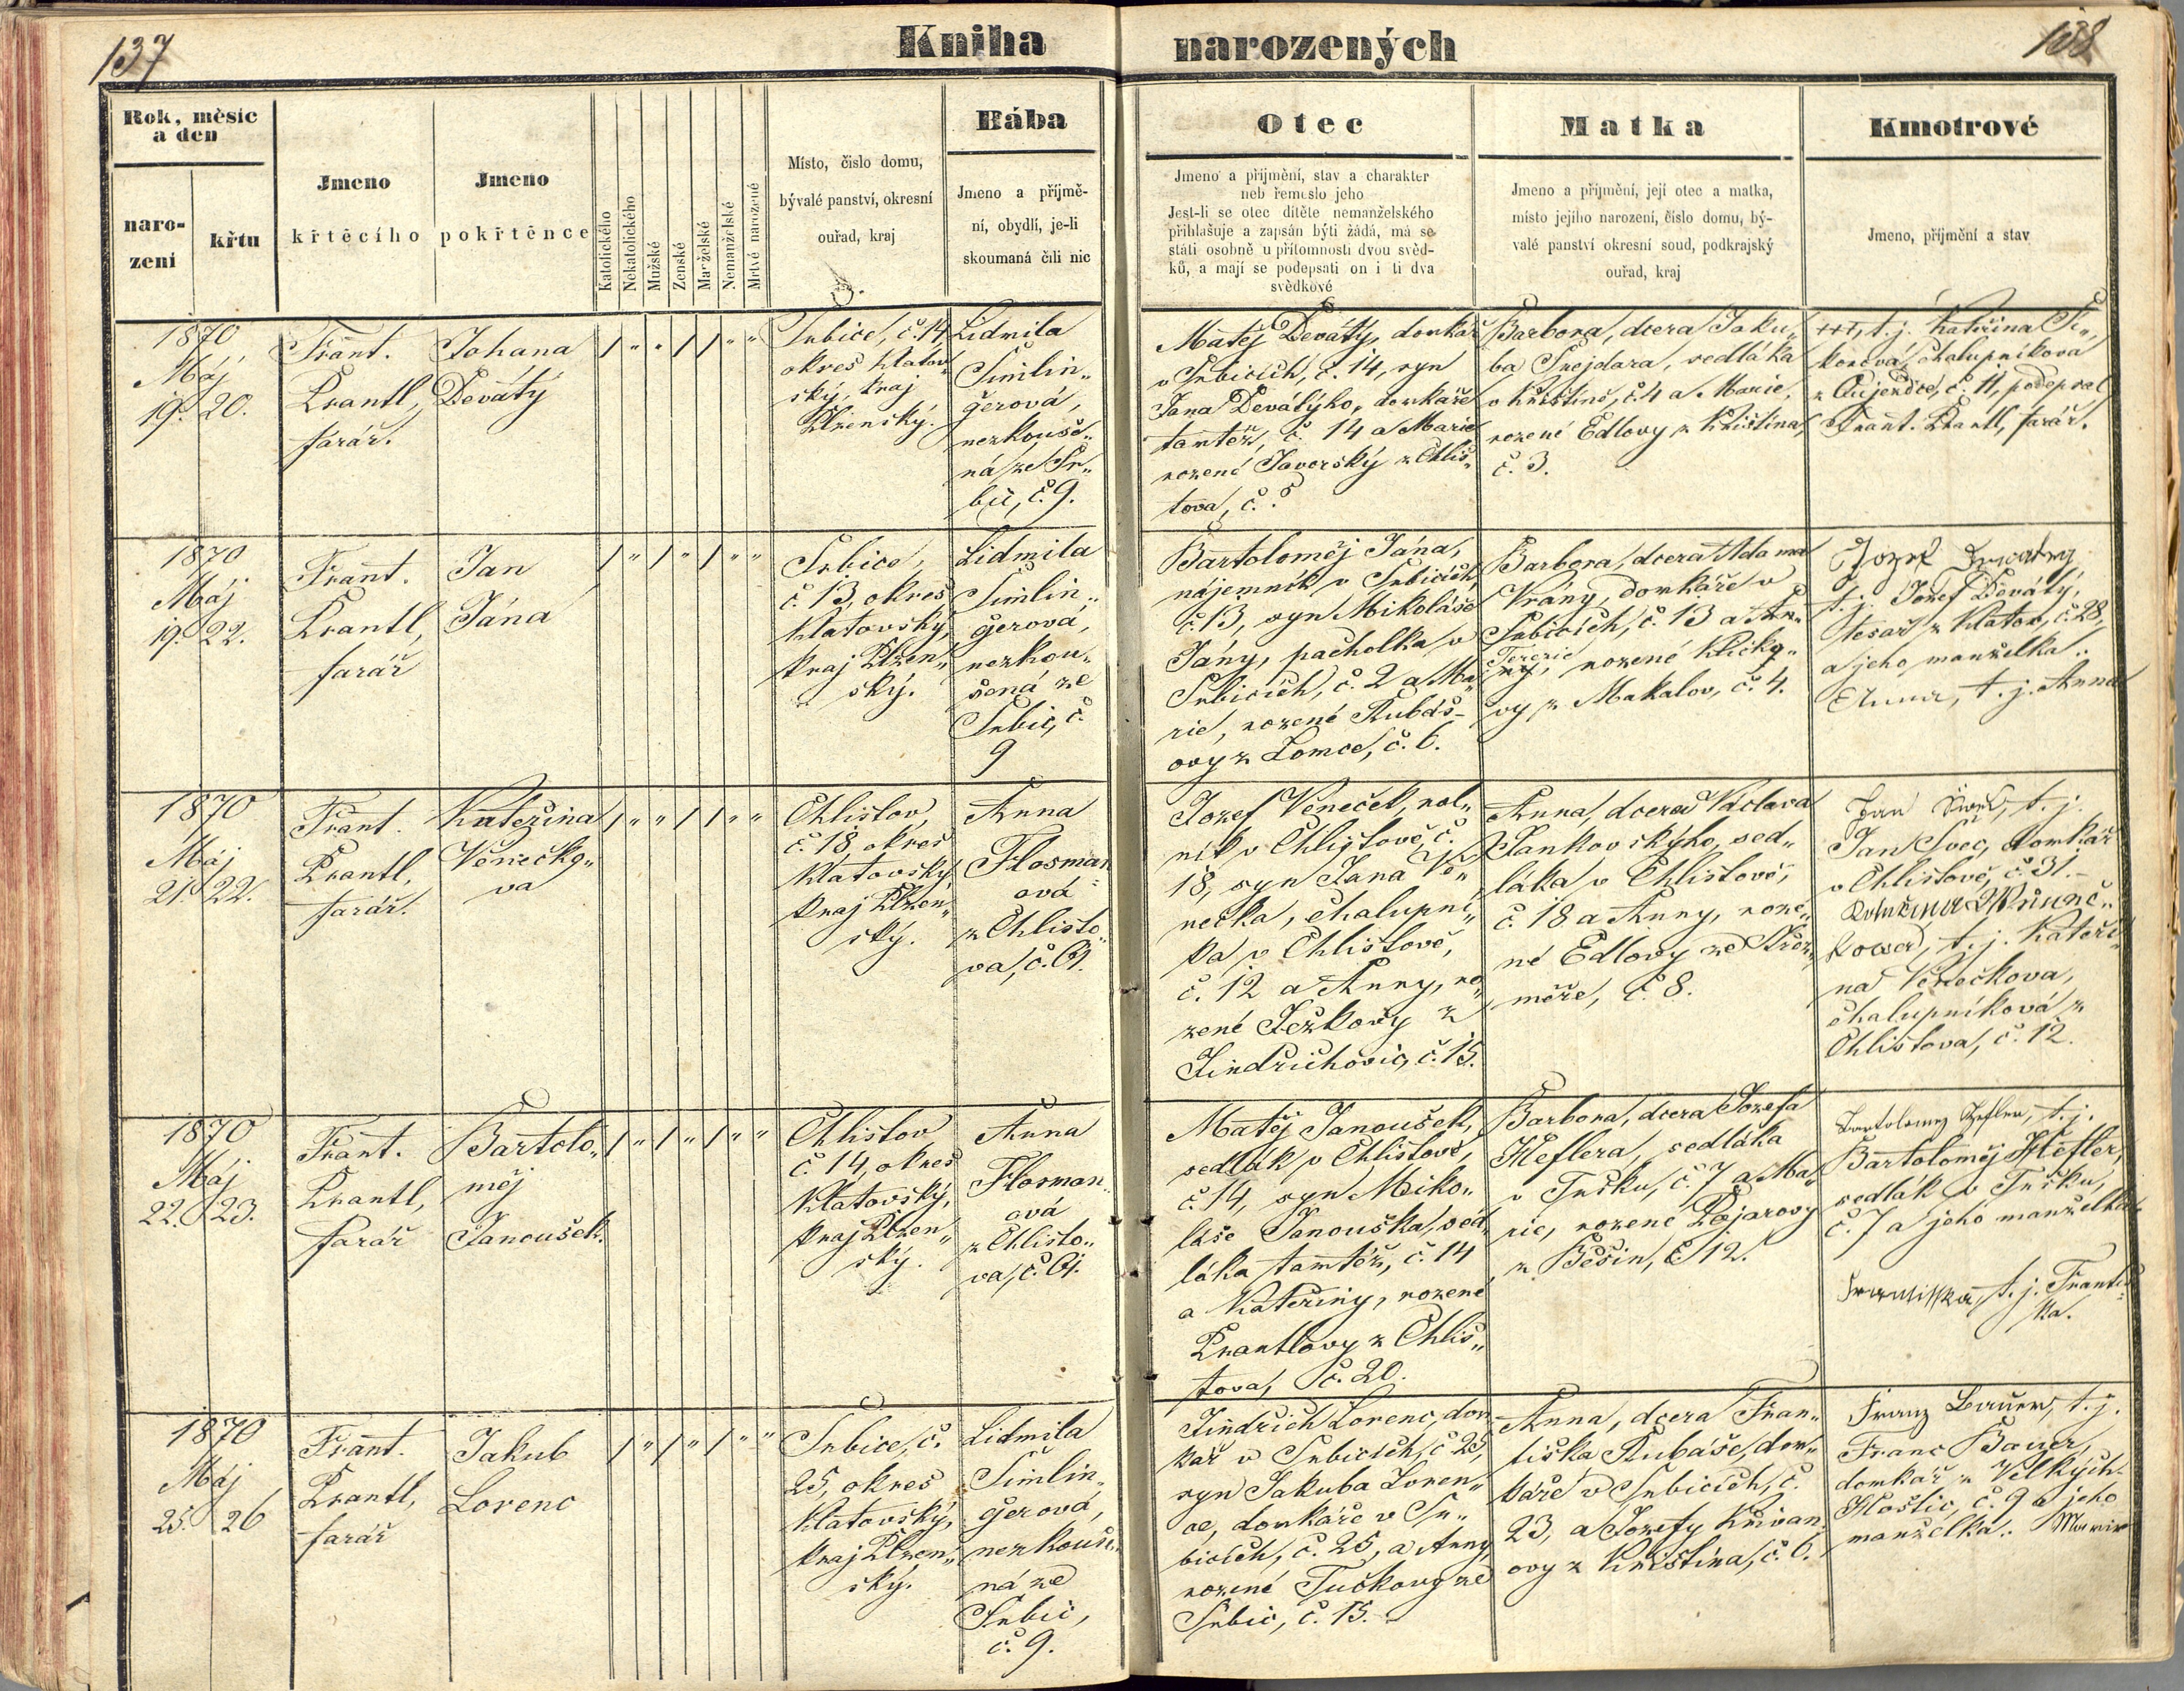 137
Kniha narozených
138
Rok, měsíc
a den
naro-
zení
křtu
Jmeno
křtěcího
Jmeno
pokřtěnce
Katolického
Nekatolického
Mužské
Ženské
Manželské
Nemanželské
Mrtvě narozené
Místo, číslo domu,
bývalé panství, okresní
ouřad, kraj
Bába
Jmeno a příjmě-
ní, obydlí, je-li
skoumaná čili nic
Otec
Jmeno a příjmění, stav a charakter
neb řemeslo jeho
Jest-li se otec dítěte nemanželského
přihlašuje a zapsán býti žádá, má se
státi osobně u přítomnosti dvou svěd-
ků, a mají se podepsati on i ti dva
svědkové
Matka
Jmeno a příjmění, její otec a matka,
místo jejího narození, číslo domu, bý-
valé panství okresní soud, podkrajský
ouřad, kraj
Kmotrové
Jmeno, příjmění a stav
1870
Máj
19. 20.
Frant.
Krantl,
farář.
Johana
Deváty
Srbice, č. 14
okres Klatov„
ský, kraj
Plzenský.
Lidmila
Šimlin„
gerová,
nezkouše„
ná ze Sr„
bic, č. 9.
Matěj Deváty, domkář
v Srbicích, č. 14, syn
Jana Devátýho, domkáře
tamtéž, č. 14 a Marie
rozené Javorský z Chlis„
tova, č. ?
Barbora, dcera Jaku„
ba Šnejdara, sedláka
v Křištíně, č. 4 a Marie,
rozené Edlovy z Křištína,
č. 3.
+++, t. j. Kateřina
chalupníková
č. 11, podepsal
Frant. Krantl, farář.
1870
Máj
19. 22.
Frant.
Krantl,
farář
Jan
Jána
Srbice,
č. 13, okres
Klatovský,
kraj Plzen„
ský.
Lidmila
Šimlin„
gerová,
nezkou„
šená ze
Srbic, č.
9
Bartoloměj Jána,
nájemník v Srbicích,
č. 13, syn Mikoláše
Jány, pacholka v
Srbicích, č. 2 a Ma„
rie, rozené Kubáš-
ovy z Lomce, č. 6.
Barbora, dcera Adama
Vrány, domkáře v
Srbicích, č. 13 a An„
Terezie
ny, rozené Kličko„
vy z Makalov, č. 4.
Jozef Devátey,
t. j. Jozef Deváty,
tesař z Klatov, č. 28,
a jeho manželka:
Anna, t. j. Anna
1870
Máj
21. 22.
Frant.
Krantl,
farář.
Kateřina
Věnečko„
va
Chlistov,
č. 18, okres
Klatovský
kraj Plzen„
ský.
Anna
Flosman
ová
z Chlisto„
va, č. 61.
Jozef Věneček, rol„
ník v Chlistově, č.
18, syn Jana Vě„
nečka, chalupní„
ka v Chlistově,
č. 12 a Anny, ro„
zené Ježkovy z
Jindřichovic, č. 15.
Anna, dcera Václava
Jankovskýho, sed„
láka v Chlistově,
č. 18 a Anny, roze„
né Edlovy ze Křez„
měře, č. 8.
Jan Švec, t. j.
Jan Švec, domkář
v Chlistově, č. 31.
Kateřina Věneč„
kowa, t. j. Kateři„
na Věnečkova,
chalupníková z
Chlistova, č. 12.
1870
Máj
22. 23.
Frant.
Krantl,
farář
Bartolo„
měj
Janoušek.
Chlistov
č. 14, okres
Klatovský,
kraj Plzen„
ský.
Anna
Flosman„
ová
z Chlisto„
va, č. 61.
Matěj Janoušek,
sedlák v Chlistově,
č. 14, syn Miko„
láše Janouška, sed„
láka tamtéž, č. 14
a Kateřiny, rozené
Krantlovy z Chlis„
tova, č. 20.
Barbora, dcera Jozefa
Heflera, sedláka
v Tušku, č. 7 a Ma„
rie, rozené Pojarovy
z Běšin, č. 12.
Bartolomej Hefler, t. j.
Bartoloměj Hefler,
sedlák v Tušku,
č. 7 a jeho manželka
Frantisska, t. j. Františ„
ka.
1870
Máj
25. 26
Frant.
Krantl,
farář
Jakub
Lorenc
Srbice, č.
25, okres
Klatovský,
kraj Plzen„
ský.
Lidmila
Šimlin„
gerová,
nezkouše„
ná ze
Srbic,
č. 9.
Jindřich Lorenc, dom„
kář v Srbicích, č. 25,
syn Jakuba Loren„
ce, domkáře v Sr„
bicích, č. 25, a Anny,
rozené Tučkovy ze
Srbic, č. 15.
Anna, dcera Fran„
tiška Kubáše, dom„
káře v Srbicích, č.
23, a Jozefy Křivan„
ovy z Křištína, č. 6.
Franz Bauer, t. j.
Franc Bauer,
domkář z Velkých
Hoštic, č. 9 a jeho
manželka: Marie